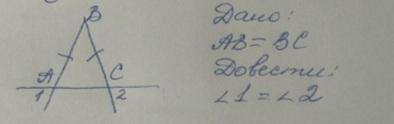 B
A
C
1
2
Дано:
AB = BC
Довести:
∠1 = ∠2